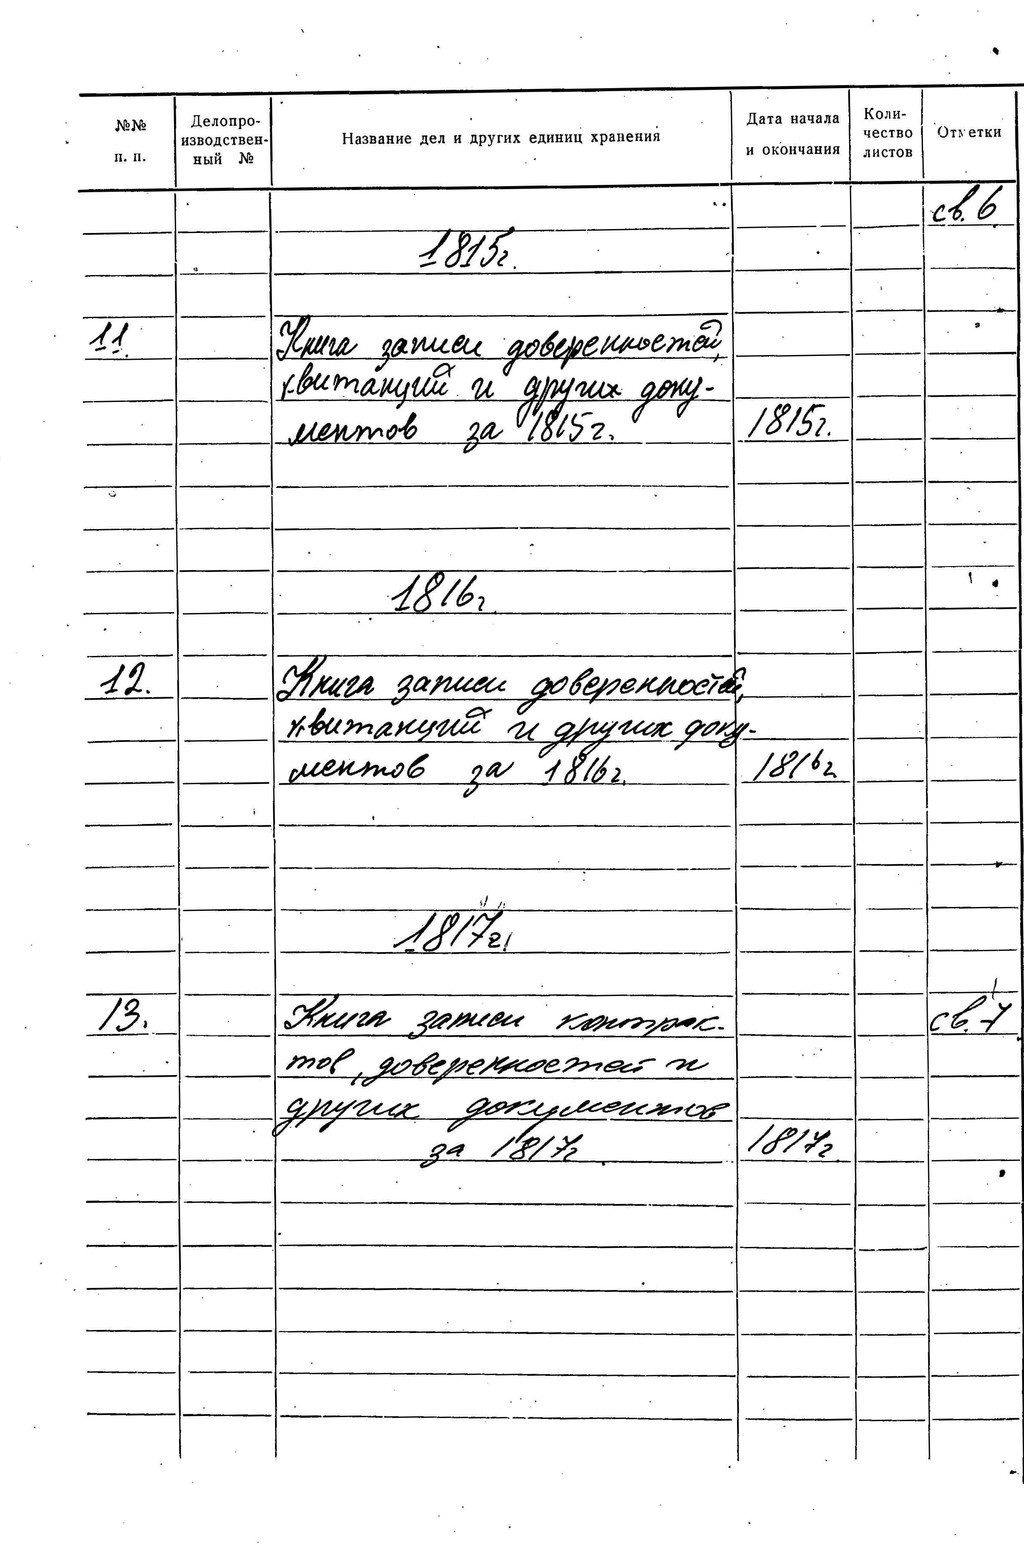 №№ п. п.
Делопро-
изводствен-
ный №
Название дел и других единиц хранения
Дата начала
и окончания
Коли-
чество
листов
Отметки
св. 6
1815г.
11.
Книга записи доверенностей,
квитанций и других доку-
ментов за 1815г. 1815г.
1816г.
12.
Книга записи доверенностей,
квитанций и других доку-
ментов за 1816г. 1816г.
1817г.
13. Книга записи контрак- св. 7
тов, доверенностей и
других документов
за 1817г. 1817г.